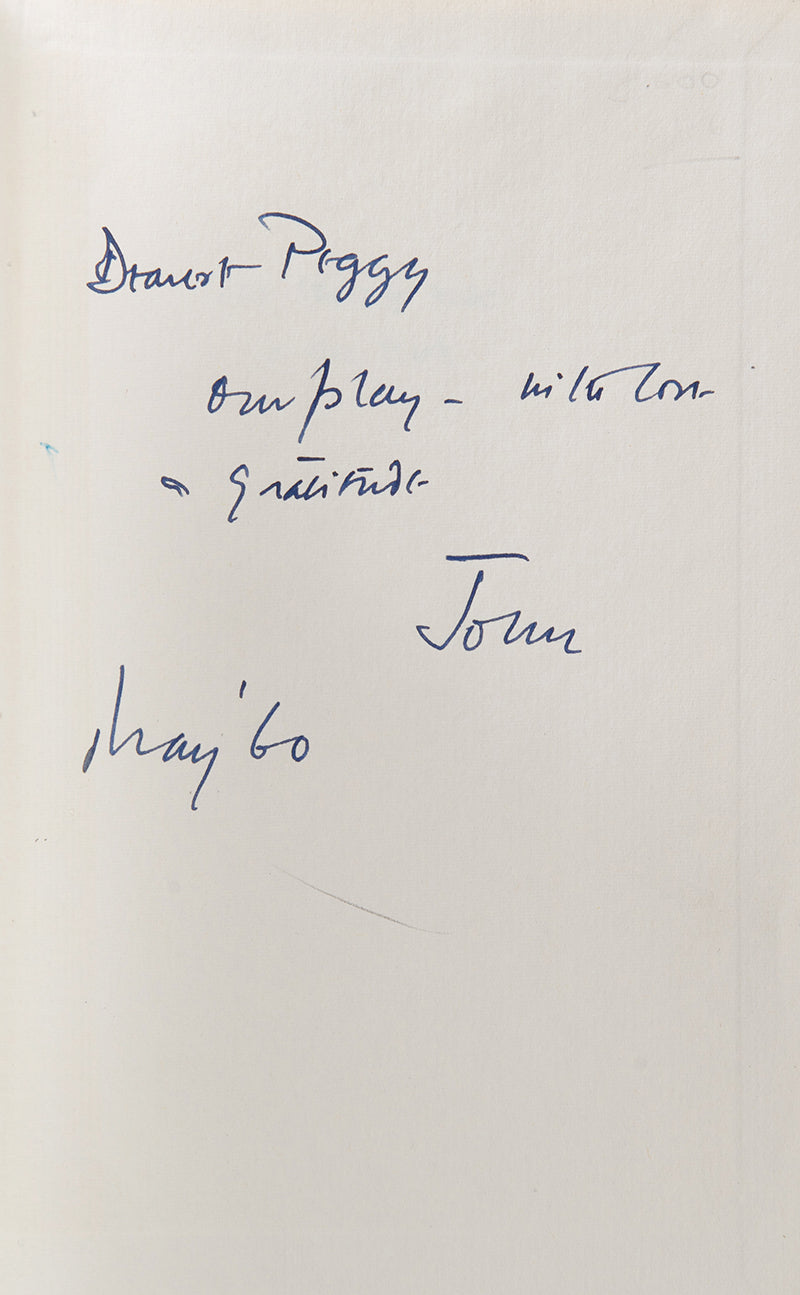 Dearest Peggy
our play - with love
& gratitude
John
May '60